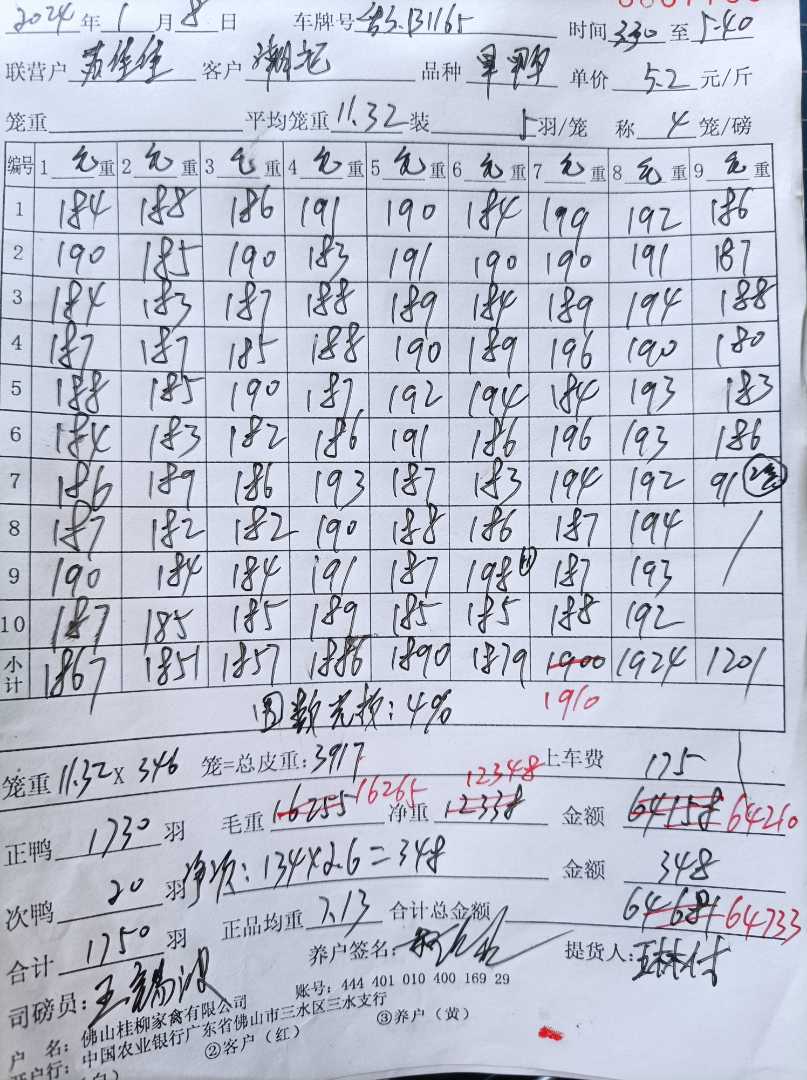 2024年 1 月 8 日 车牌号 B1165 时间 330 至 5.40
联营户 客户 潮记 品种 单价 5.2 元/斤
笼重 平均笼重 11.32 装 5 羽/笼 称 4 笼/磅
编号 1 毛重 2 毛重 3 毛重 4 毛重 5 毛重 6 毛重 7 毛重 8 毛重 9 毛重
1 184 188 186 191 190 184 199 192 186
2 190 185 190 183 191 190 190 191 187
3 184 183 187 188 189 184 189 194 188
4 187 187 185 188 190 189 196 190 180
5 188 185 190 187 192 194 184 193 183
6 184 183 182 186 191 186 196 193 186
7 186 189 186 193 187 183 194 192 91 2笼
8 187 182 182 190 188 186 187 194
9 190 184 184 191 187 198 187 193
10 187 185 185 189 185 185 188 192
小计 1867 1851 1857 1886 1890 1879 1900 1924 1201
1910
4%
笼重 11.32 X 346 笼=总皮重: 3917 上车费 175
16265 12348
正鸭 1730 羽 毛重 16255 净重 12338 金额 64158 64210
134X2.6=348 金额 348
次鸭 20 羽
正品均重 7.13 合计总金额 64681 64733
合计 1750 羽
养户签名: 提货人:
司磅员:
账号: 444 401 010 400 169 29
户 名: 佛山桂柳家禽有限公司
开户行: 中国农业银行广东省佛山市三水区三水支行
②客户(红) ③养户(黄)